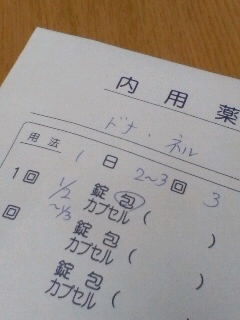 内用薬
ドナ・ネル
用法 1日 2~3回 3
1回 1/2~1/3 錠 包 カプセル ( )
回 錠 包 カプセル ( )
錠 包 カプセル (